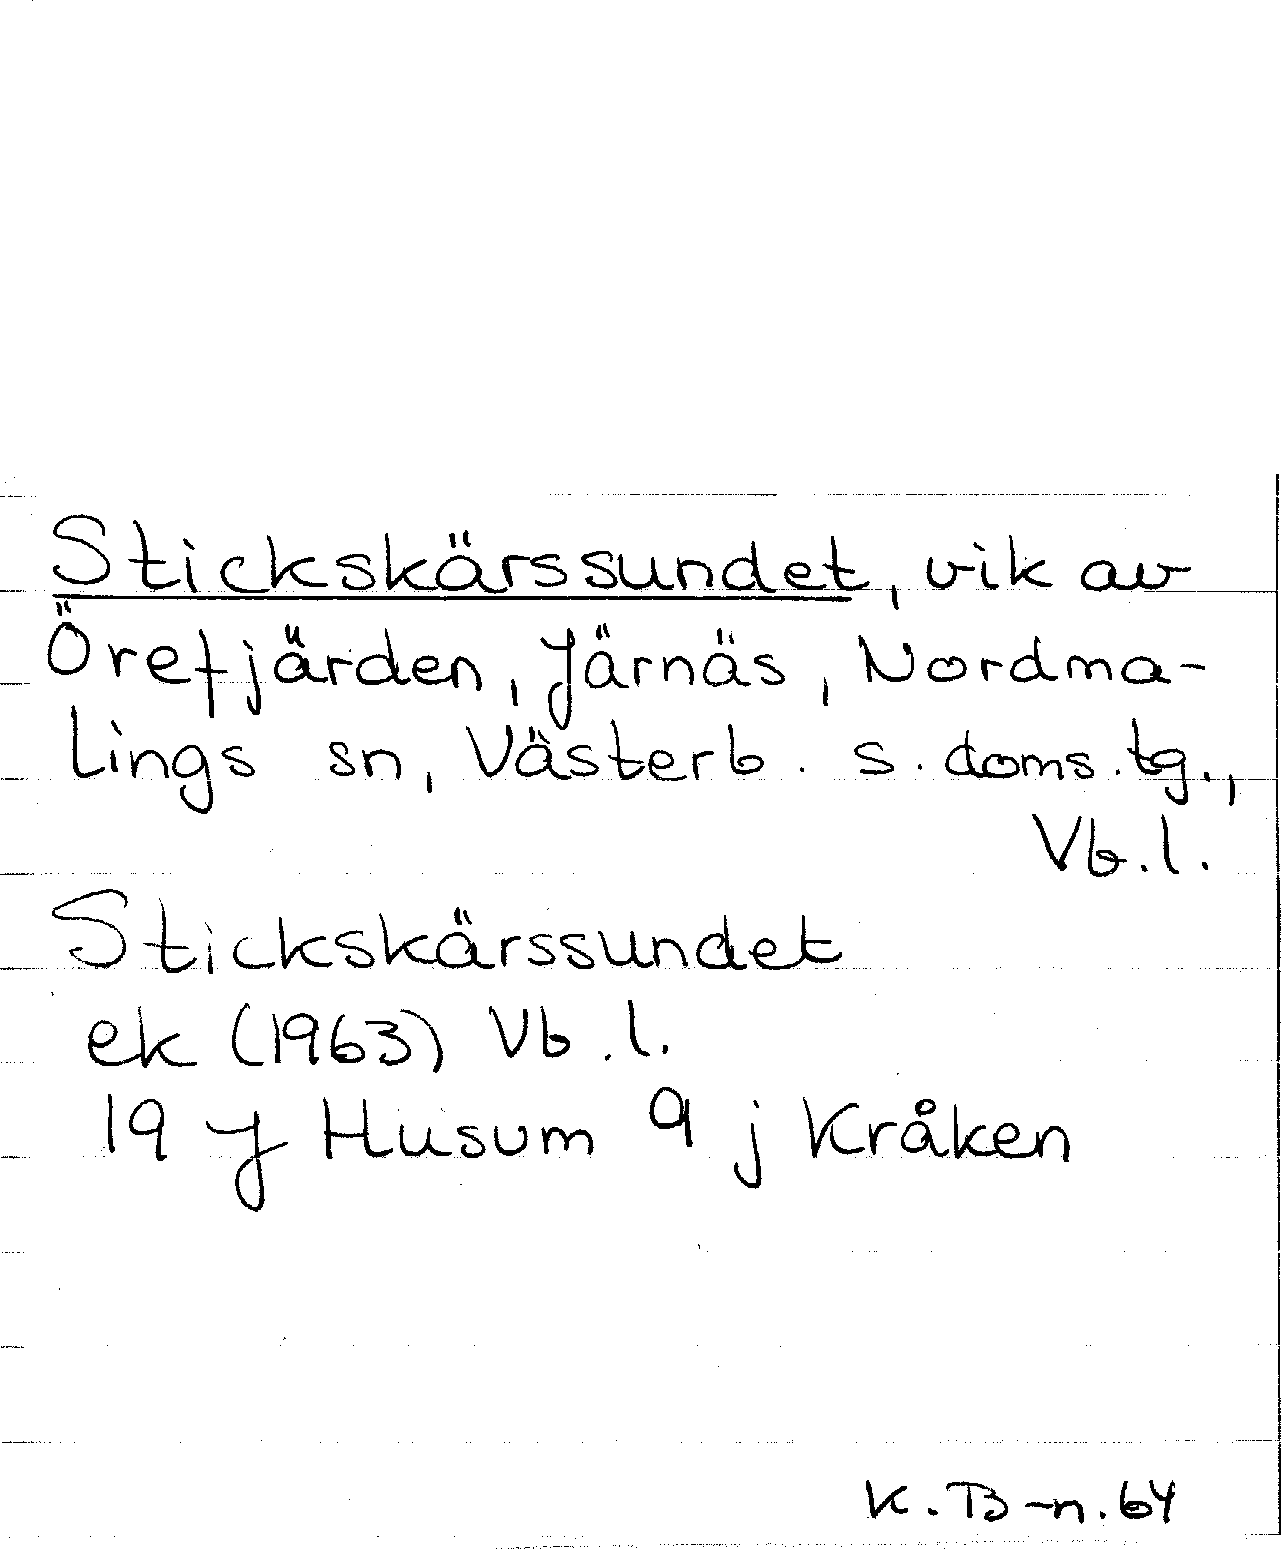 Stickskärssundet, vik av
Örefjärden, Järnäs, Nordma-
lings sn, Västerb. s. doms.tg.,
Vb.l.
Stickskärssundet
ek (1963) Vb.l.
19 J Husum 9 j Kråken
K.B-n.64